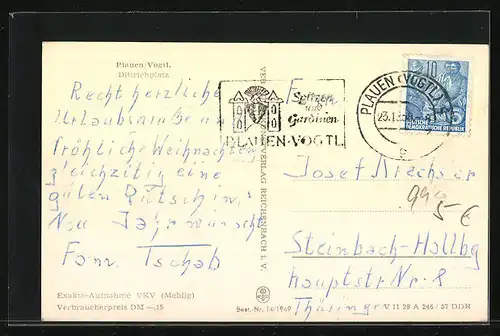 Plauen/Vogtl.
Dittrichplatz
Recht herzliche
Urlaubsgrüße
fröhliche Weihnachten
gleichzeitig eine
guten Rutsch in
Neu Jahr wünscht
Fam. Tschab
Exakta-Aufnahme VKV (Mehlig)
Verbraucherpreis DM —,15
Spitzen
und
Gardinen
PLAUEN-VOGTL
PLAUEN (VOGTL)
DEUTSCHE
DEMOKRATISCHE REPUBLIK
Josef
5 €
Steinbach-Hallbg
Hauptstr Nr 8
Thüringen
Best. Nr. 14/1949
V 11 28 A 246/57 DDR